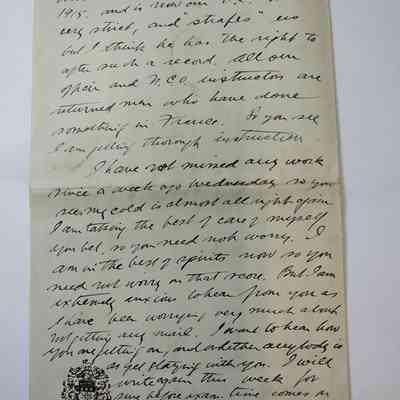 1915. and is now our
very strict, and "strafes" us
but I think he has the right to
after such a record. All our
officer and N.C.O. instructors are
returned men who have done
something in France. So you see
I am getting thorough instruction
I have not missed any work
since a week ago Wednesday so you
see my cold is almost all right again
I am taking the best of care of myself
you bet, so you need not worry. I
am in the best of spirits now so you
need not worry on that score. But I am
extremely anxious to hear from you as
I have been worrying very much about
not getting any mail. I want to hear how
you are getting on, and whether anybody is
staying with you. I will
write again this week for
sure before exam time comes on